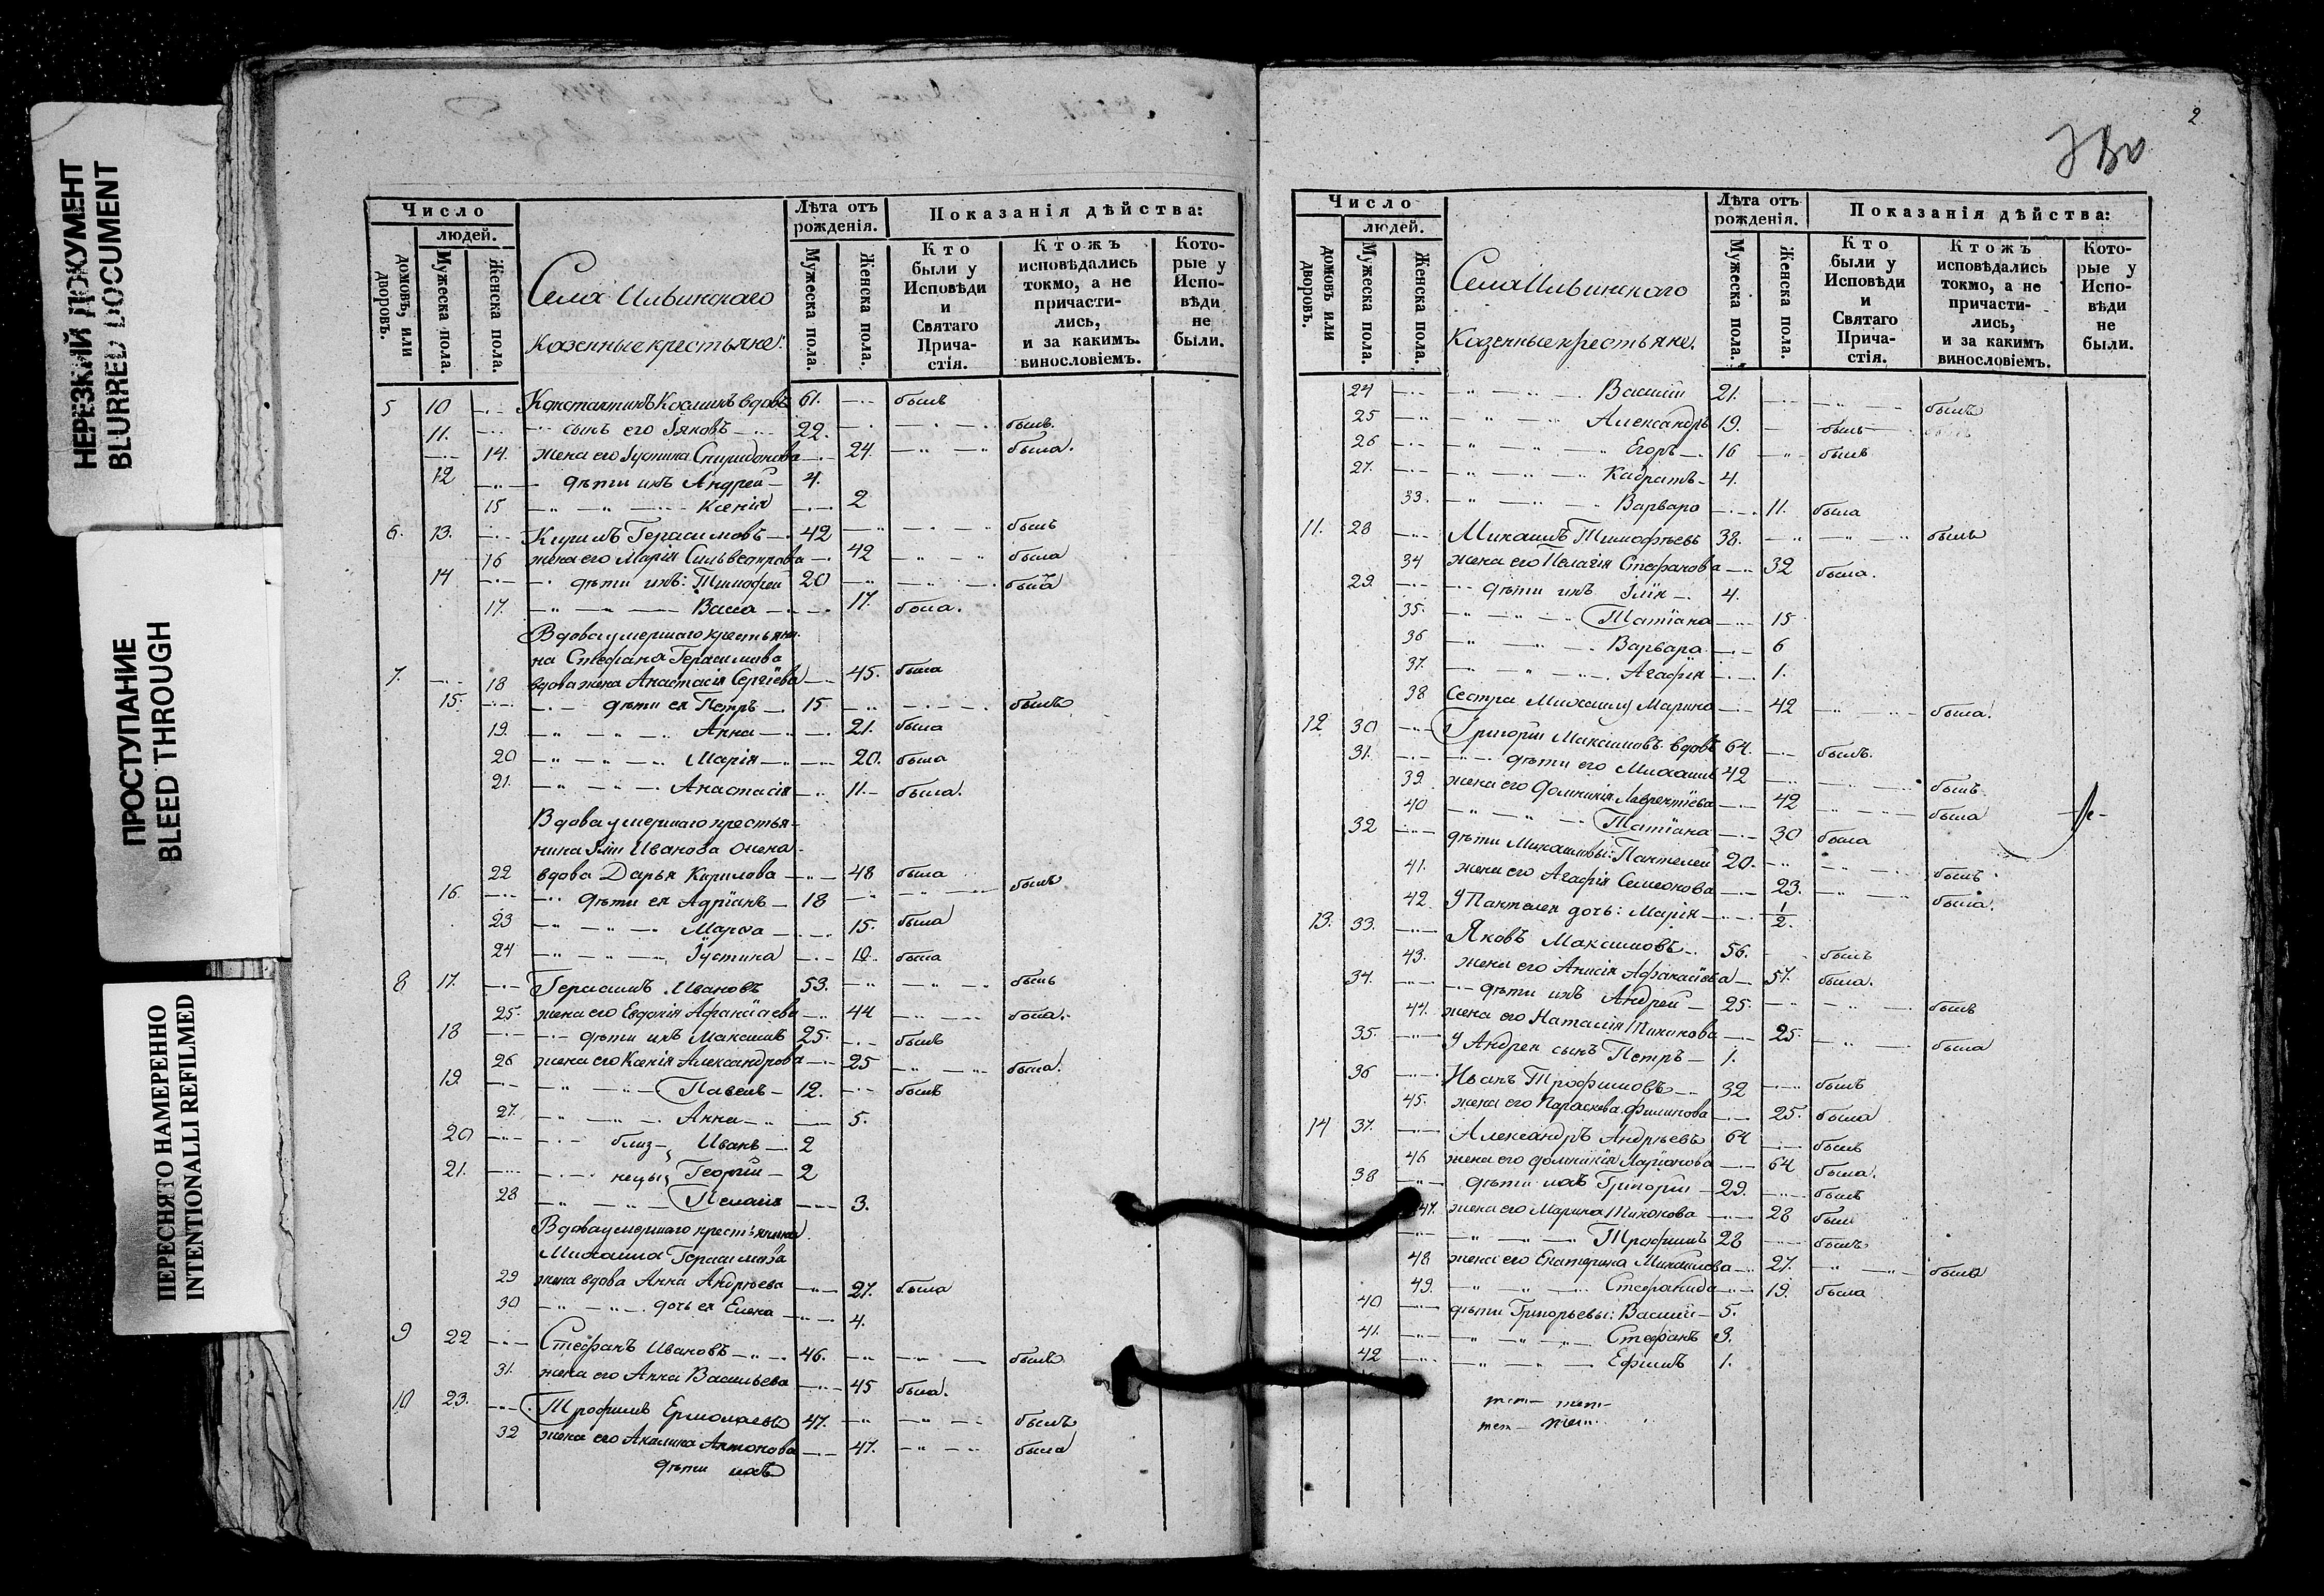 НЕРЕЗКИЙ ДОКУМЕНТ
BLURRED DOCUMENT
ПРОСТУПАНИЕ
BLEED THROUGH
ПЕРЕСНЯТО НАМЕРЕННО
INTENTIONALLI REFILMED
Число
людей.
домовъ, или дворовъ.
Мужеска пола.
Женска пола.
Села Ильинскаго
Казенные крестьяне:
Лѣта отъ рожденія.
Мужеска пола.
Женска пола.
Показанія дѣйства:
Кто были у Исповѣди и Святаго Прича-стія.
Ктожъ исповѣдались токмо, а не причасти-лись, и за какимъ. винословіемъ.
Кото-рые у Испо-вѣди не были.
5 10 Константинъ Козминъ вдовъ 61. былъ
11. сынъ его Іяковъ 22. былъ.
14. жена его Іустина Спиридонова 24. была.
12 дѣти ихъ Андрей 4.
15 Ксенія 2
6. 13. Кирилъ Герасимовъ 42 былъ
16 жена его Марія Сильвестрова 42 была
14 дѣти ихъ: Тимофеи 20
17. Васса 17. была.
Вдова умершаго крестьяни-
на Стефана Герасимова
7. 18 вдова жена Анастасія Сергіева 45. была
15. дѣти ея Петръ 15 былъ
19. Анна 21. была
20 Марія 20. была
21. Анастасія 11. была.
Вдова умершаго крестья-
нина Іліи Иванова
22 вдова Дарья Кирилова 48 была
16. дѣти ея Адріанъ 18 былъ
23 Марѳа 15. была
24 Іустина 10. была
8 17. Герасимъ Ивановъ 53. былъ
25. жена его Евдокія 44 была.
18 дѣти ихъ Максимъ 25. былъ
26 жена его Ксенія Александрова 25 была.
19. Павелъ 12. былъ
27. Анна 5.
20 близ- Иванъ 2
21. нецы Георгій 2
28 3.
Вдова умершаго крестьянина
Михаила Герасимова
29 жена вдова Анна Андреева 27. была
30 дочь ея Елена 4.
9 22 Стефанъ Ивановъ 46. былъ
31. жена его Анна Васильева 45 была.
10 23. Трофимъ Ермолаевъ 47. былъ
32 жена его Акилина Антонова 47. была
дѣти ихъ
2
Число
людей.
домовъ или дворовъ.
Мужеска пола.
Женска пола.
Села Ильинскаго
Казенные крестьяне.
Лѣта отъ рожденія.
Мужеска пола.
Женска пола.
Показанія дѣйства:
Кто были у Исповѣди и Святаго Прича-стія.
Ктожъ исповѣдались токмо, а не причасти-лись, и за какимъ винословіемъ.
Кото-рые у Испо-вѣди не были.
24 Василій 21. былъ
25 Александръ 19. былъ
26 Егоръ 16 былъ
27. Кадратъ 4.
33. Варвара 11. была
11. 28 Михаилъ Тимофѣевъ 38. былъ
34 жена его Пелагія Стефанова 32 была.
29. дѣти ихъ Ілія 4.
35. Татіана 15
36 Варвара 6
37. Агафія 1.
38 Сестра Михаилу Марина 42 была.
12 30 Григорій Максимовъ вдовъ 64. былъ.
31. дѣти его Михаилъ 42 былъ
39. жена его Домникія Лаврентіева 42 была
40 Татіана 30 была
32 дѣти Михаиловы: Пантелеи 20. былъ
41. жена его Агафія Семеонова 23. была.
42. У Пантелея дочь: Марія 1/2.
13. 33. Яковъ Максимовъ 56. былъ
43. жена его Анисія Афанасіева 57. была.
34. дѣти ихъ Андрей 25. былъ
44. жена его Наталія 25. была
35. У Андрея сынъ Петръ 1.
36 Иванъ Трофимовъ 32 былъ
45. жена его Параскева Филипова 25. была
14 37. Александръ Андрѣевъ 64 былъ
46 жена его Домникія Ларіонова 64 была.
38 дѣти ихъ Григорій 29. былъ
47. жена его Марина Тихонова 28
Трофимъ 28 былъ
48 жена его Екатерина Михаилова 27. была
49. Стефанида 19. была
40 дѣти Григорьевы: Василій 5.
41. Стефанъ 3.
42 Ефимъ 1.